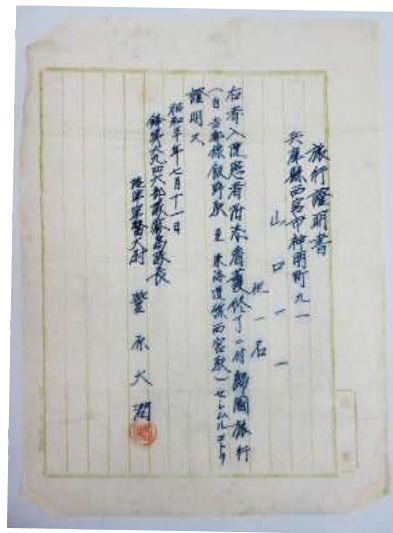 旅行證明書
兵庫縣西宮市神明町九一
山口一一
他一名
右者入院患者附添看護修了ニ付歸國旅行
(自吉都線飯野駅至東海道線西宮駅)セシムルコトヲ
證明ス
昭和二十年七月十一日
第九四六部隊
隊長
陸軍軍醫大尉 豐原大潤